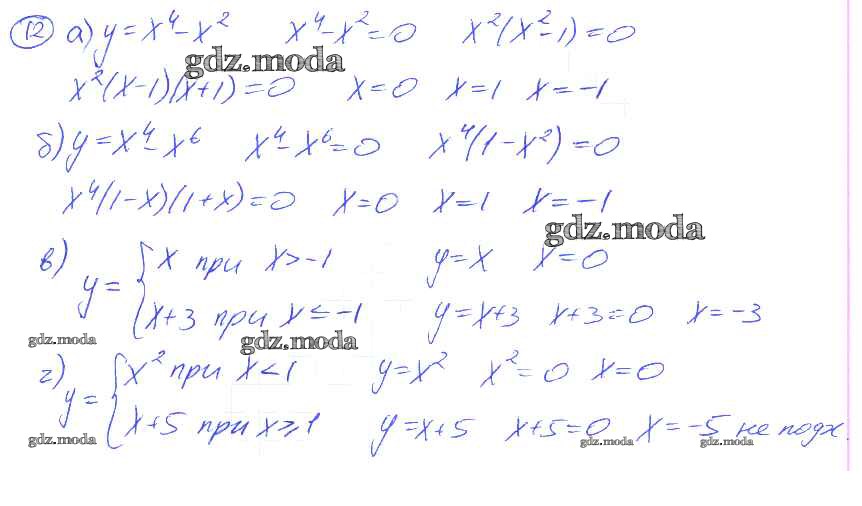 12 а) y = x⁴ - x² x⁴ - x² = 0 x²(x² - 1) = 0
gdz.moda
x²(x-1)(x+1) = 0 x = 0 x = 1 x = -1
б) y = x⁴ - x⁶ x⁴ - x⁶ = 0 x⁴(1 - x²) = 0
x⁴(1-x)(1+x) = 0 x = 0 x = 1 x = -1
gdz.moda
в) y = { x при x > -1 y = x x = 0
x+3 при x ≤ -1 y = x+3 x+3 = 0 x = -3
gdz.moda gdz.moda
г) y = { x² при x < 1 y = x² x² = 0 x = 0
x+5 при x ≥ 1 y = x+5 x+5 = 0 x = -5 не подх.
gdz.moda gdz.moda gdz.moda